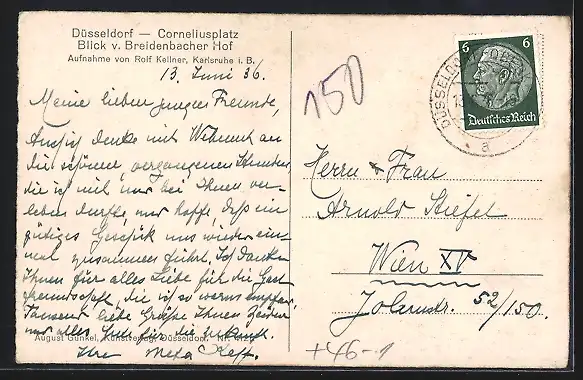 Düsseldorf — Corneliusplatz
Blick v. Breidenbacher Hof
Aufnahme von Rolf Kellner, Karlsruhe i. B.
13. Juni 36.
Meine lieben jungen Freunde,
denke mit Wehmut an
die schönen, vergangenen Stunden,
die ich mit nur bei Ihnen ver-
leben durfte, nur hoffe, daß ein
gütiges Geschick uns wieder ein-
mal zusammen führt. Ich danke
Ihnen für alles Liebe für die Gast
freundschaft, die ich so warm
Tausend liebe Grüße Ihnen beiden
alles Gute für die Zukunft.
Ihre Meta
August Gunkel, Kunstverlag, Düsseldorf.
150
6 6
Deutsches Reich
DÜSSELDORF
a
Herrn & Frau
Arnold Stiefel
Wien XV
52/150.
+46-1